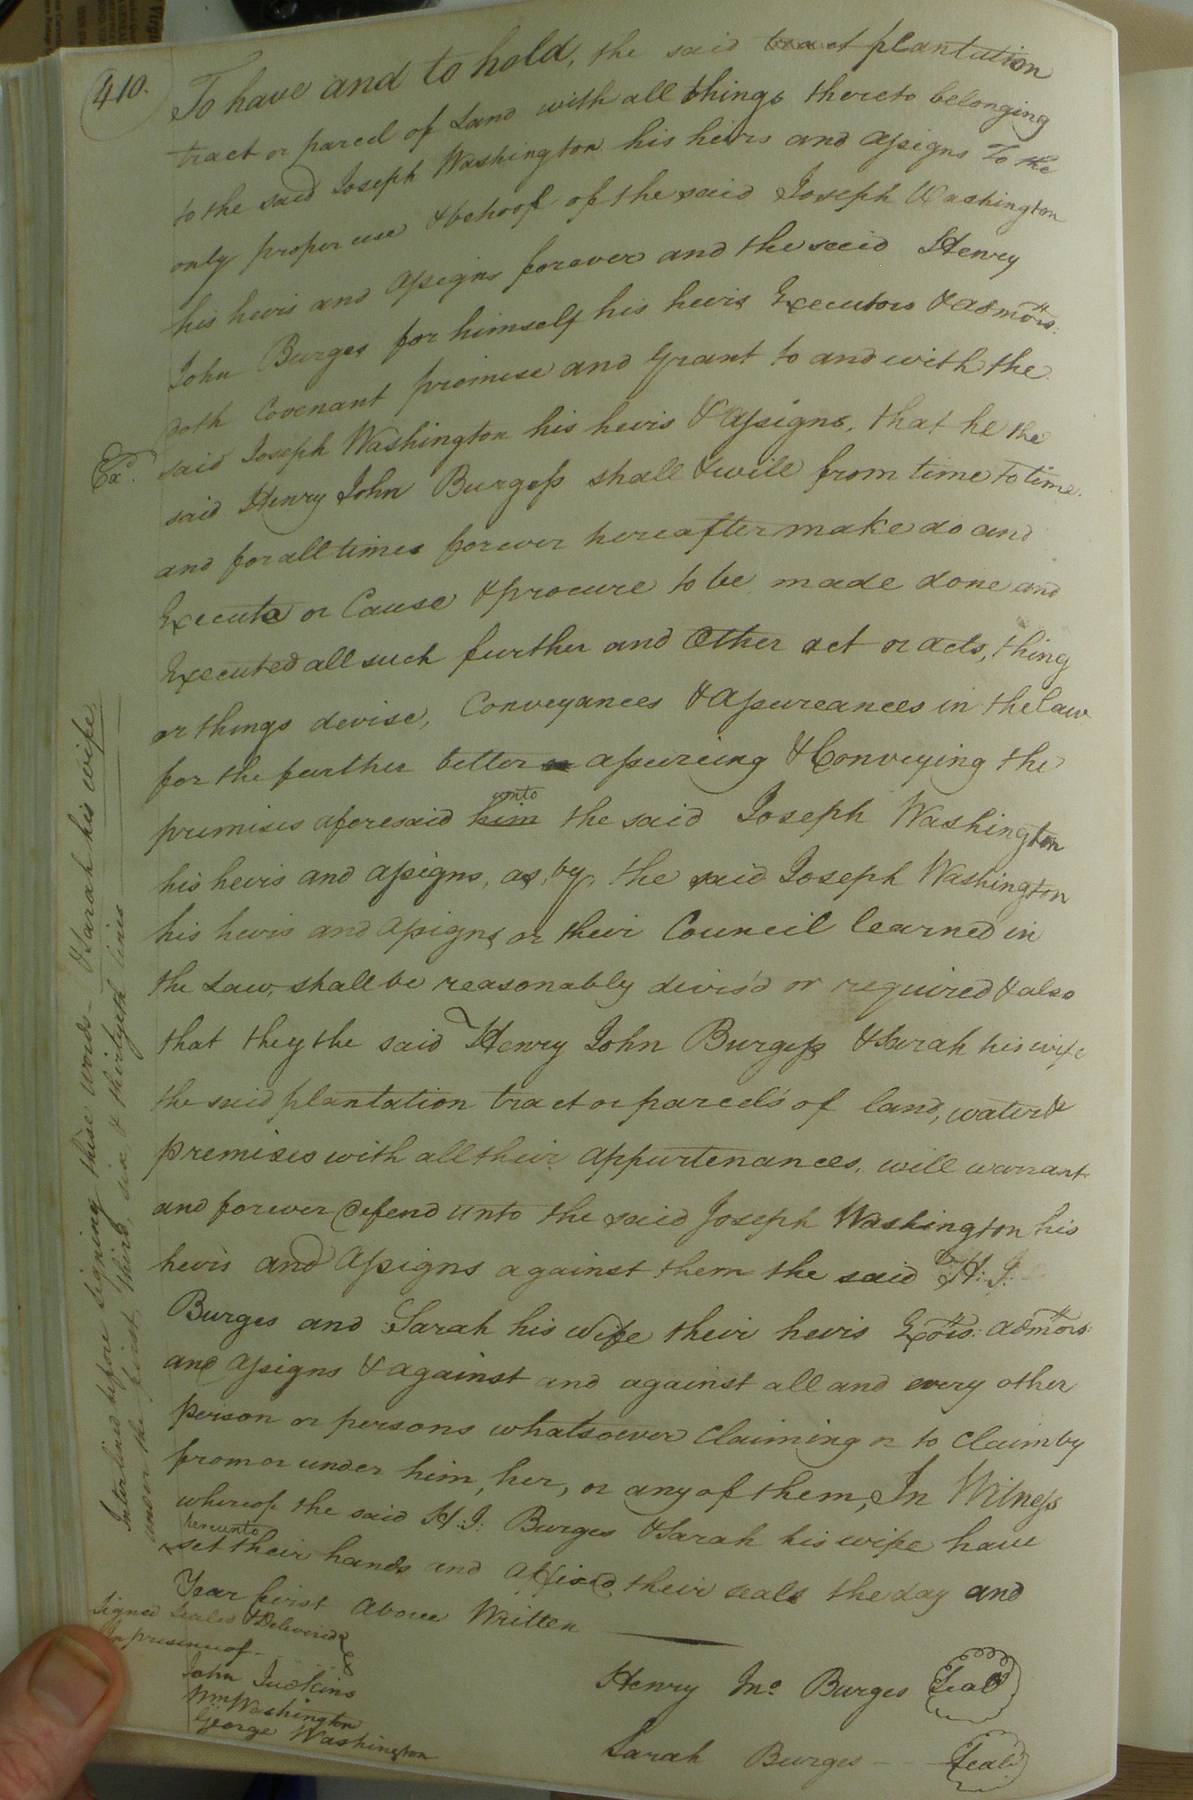 410.
To have and to hold, the said tract plantation
tract or parcel of Land with all things thereto belonging
to the said Joseph Washington his heirs and assigns To the
only proper use & behoof of the said Joseph Washington
his heirs and assigns forever and the said Henry
John Burges for himself his heirs Executors & admors:
doth Covenant promise and Grant to and with the
Exd. said Joseph Washington his heirs & assigns, that he the
said Henry John Burgess shall & will from time to time
and for all times forever hereafter make do and
Execute or Cause & procure to be made done and
Executed all such further and Other act or acts, thing
or things devise, Conveyances & assureances in the law
for the further better assureing & Conveying the
unto
premises aforesaid him the said Joseph Washington
his heirs and assigns, as, by, the said Joseph Washington
his heirs and assigns, or their Council learned in
the Law, shall be reasonably devis'd or required & also
that they the said Henry John Burgess & Sarah his wife
the said plantation tract or parcels of land, water &
premises with all their appurtenances, will warrant
and forever Defend unto the said Joseph Washington his
heirs and assigns against them the said H: J:
Burges and Sarah his wife their heirs Exors: admors:
and assigns & against and against all and every other
person or persons whatsoever Claiming or to Claim by
from or under him, her, or any of them, In Witness
whereof the said H: J: Burges & Sarah his wife have
hereunto
set their hands and affixed their seals the day and
Year first above Written
Signed Sealed & Delivered
In presence of
John Judkins
Wm Washington
George Washington
Henry Jno Burges Seal
Sarah Burges Seal
Interlined before signing these words - & Sarah his wife
under the first, third, six, & thirtyeth lines